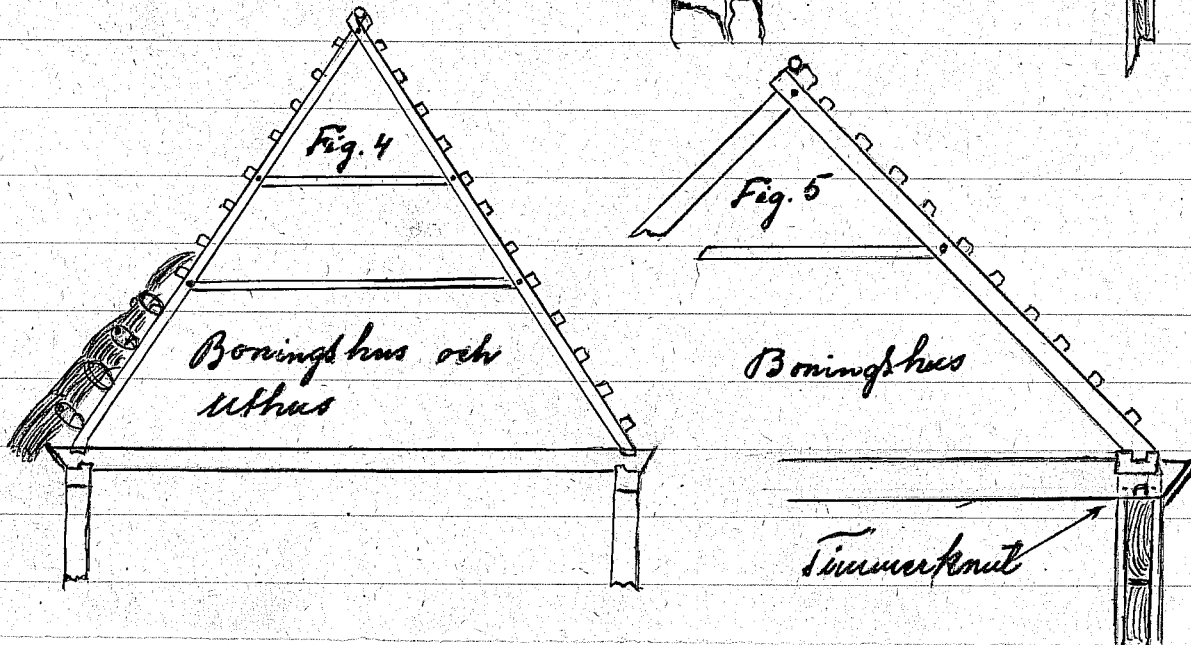 Fig. 4
Boningshus och
uthus
Fig. 5
Boningshus
Timmerknut